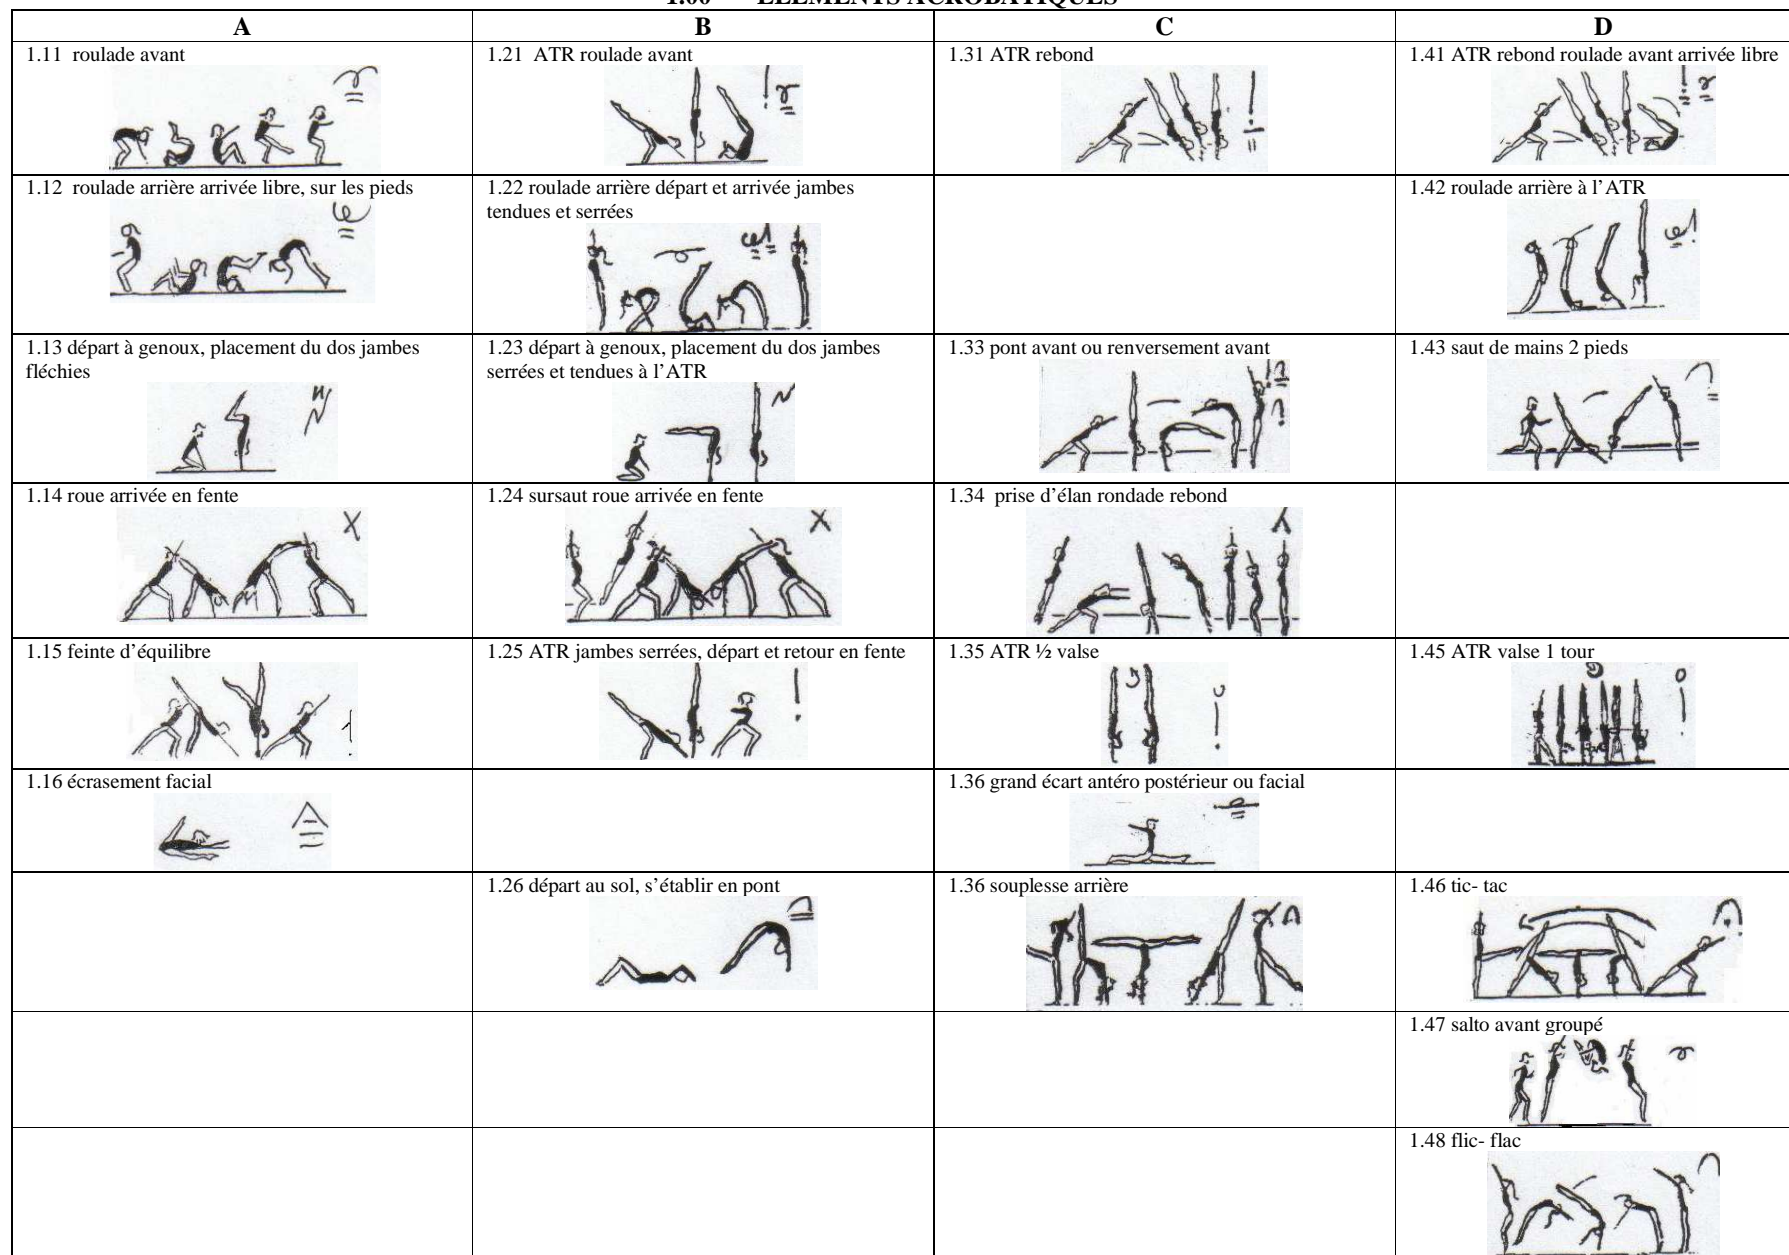 1.00 ELEMENTS ACROBATIQUES
A B C D
1.11 roulade avant
1.21 ATR roulade avant
1.31 ATR rebond
1.41 ATR rebond roulade avant arrivée libre
1.12 roulade arrière arrivée libre, sur les pieds
1.22 roulade arrière départ et arrivée jambes
tendues et serrées
1.42 roulade arrière à l’ATR
1.13 départ à genoux, placement du dos jambes
fléchies
1.23 départ à genoux, placement du dos jambes
serrées et tendues à l’ATR
1.33 pont avant ou renversement avant
1.43 saut de mains 2 pieds
1.14 roue arrivée en fente
1.24 sursaut roue arrivée en fente
1.34 prise d’élan rondade rebond
1.15 feinte d’équilibre
1.25 ATR jambes serrées, départ et retour en fente
1.35 ATR ½ valse
1.45 ATR valse 1 tour
1.16 écrasement facial
1.36 grand écart antéro postérieur ou facial
1.26 départ au sol, s’établir en pont
1.36 souplesse arrière
1.46 tic- tac
1.47 salto avant groupé
1.48 flic- flac